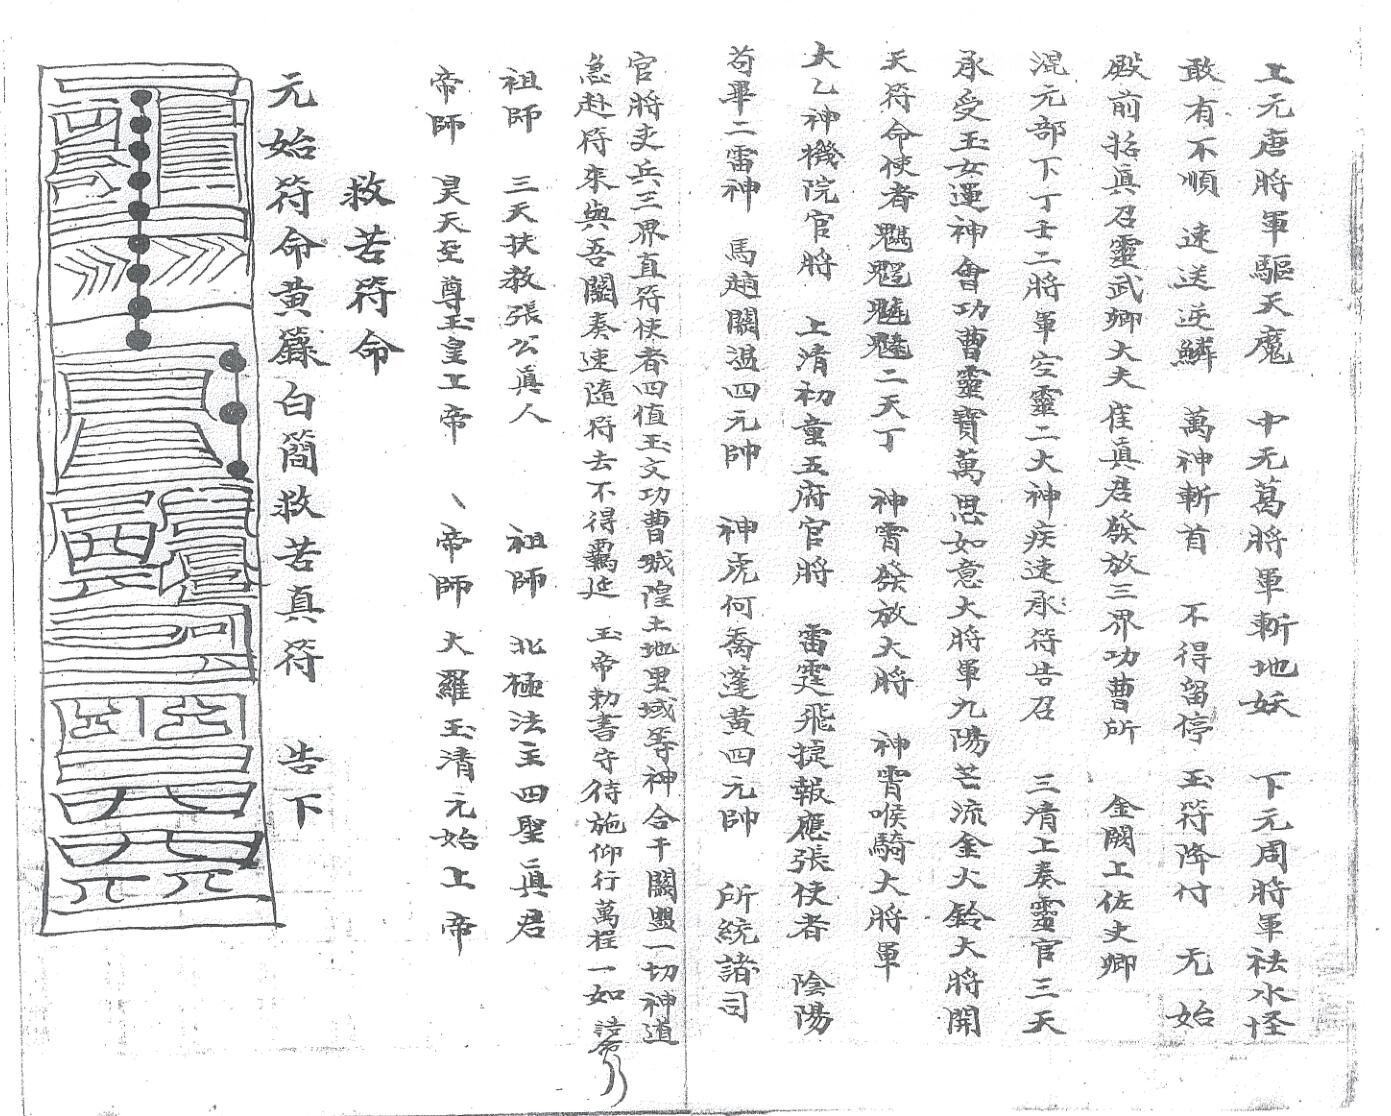 上元唐將軍驅天魔　中元葛將軍斬地妖　下元周將軍祛水怪
敢有不順　速送逆鱗　萬神斬首　不得留停　玉符降付　元始
殿前拓真召靈武卿大夫崔真君發放三界功曹所　金闕上佐史卿
混元部下丁壬二將軍空靈二大神疾速承符告召　三清上奏靈官三天
承受玉女運神會功曹靈寶萬思如意大將軍九陽芒流金火鈴大將開
天符命使者二天丁　神霄發放大將　神霄喉騎大將軍
太乙神機院官將　上清初童五府官將　雷霆飛捷報應張使者　陰陽
苟畢二雷神　馬趙關溫四元帥　神虎何喬蓬黃四元帥　所統諸司
官將吏兵三界直符使者四值玉文功曹城隍土地里域等神合干關盟一切神道
急赴符來與吾關奏速隨符去不得羈延　玉帝勅書守待施仰行萬程一如誥命
祖師　三天扶教張公真人　祖師　北極法主四聖真君
帝師　昊天至尊玉皇上帝　帝師　大羅玉清元始上帝
救苦符命
元始符命黃籙白簡救苦真符　告下